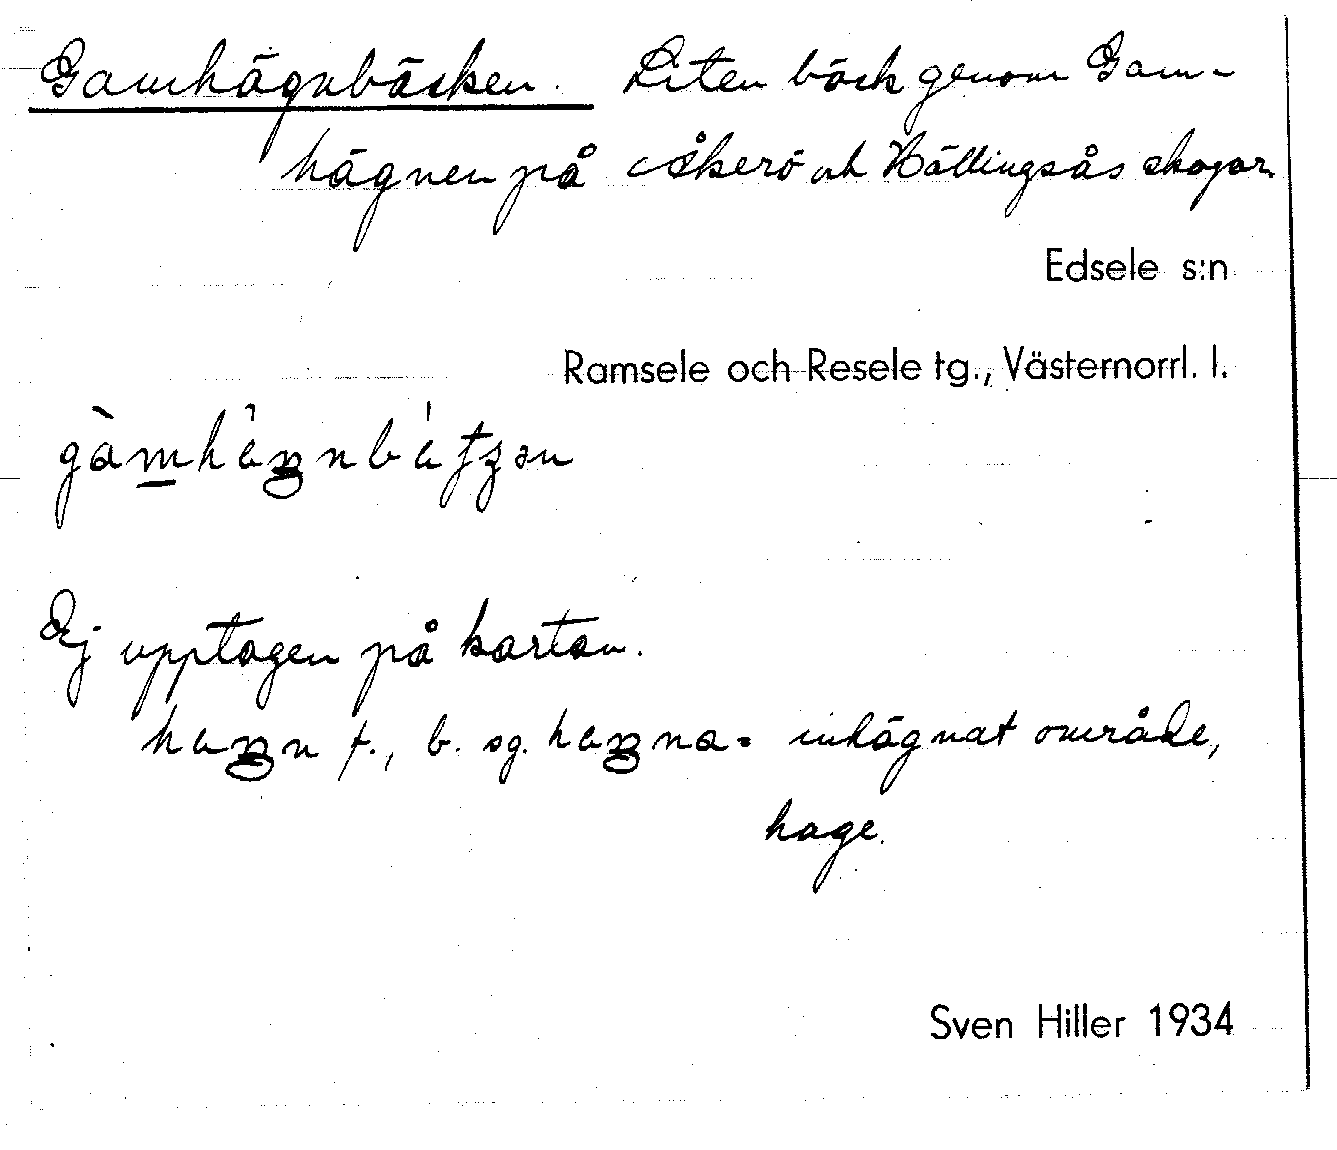 Gamhägnbäcken. Liten bäck genom Gam-
hägnen på Åkerö och Hällingsås skogar.
Edsele s:n
Ramsele och Resele tg., Västernorrl. l.
Ej upptagen på kartan.
f., b. sg. = inhägnat område,
hage.
Sven Hiller 1934